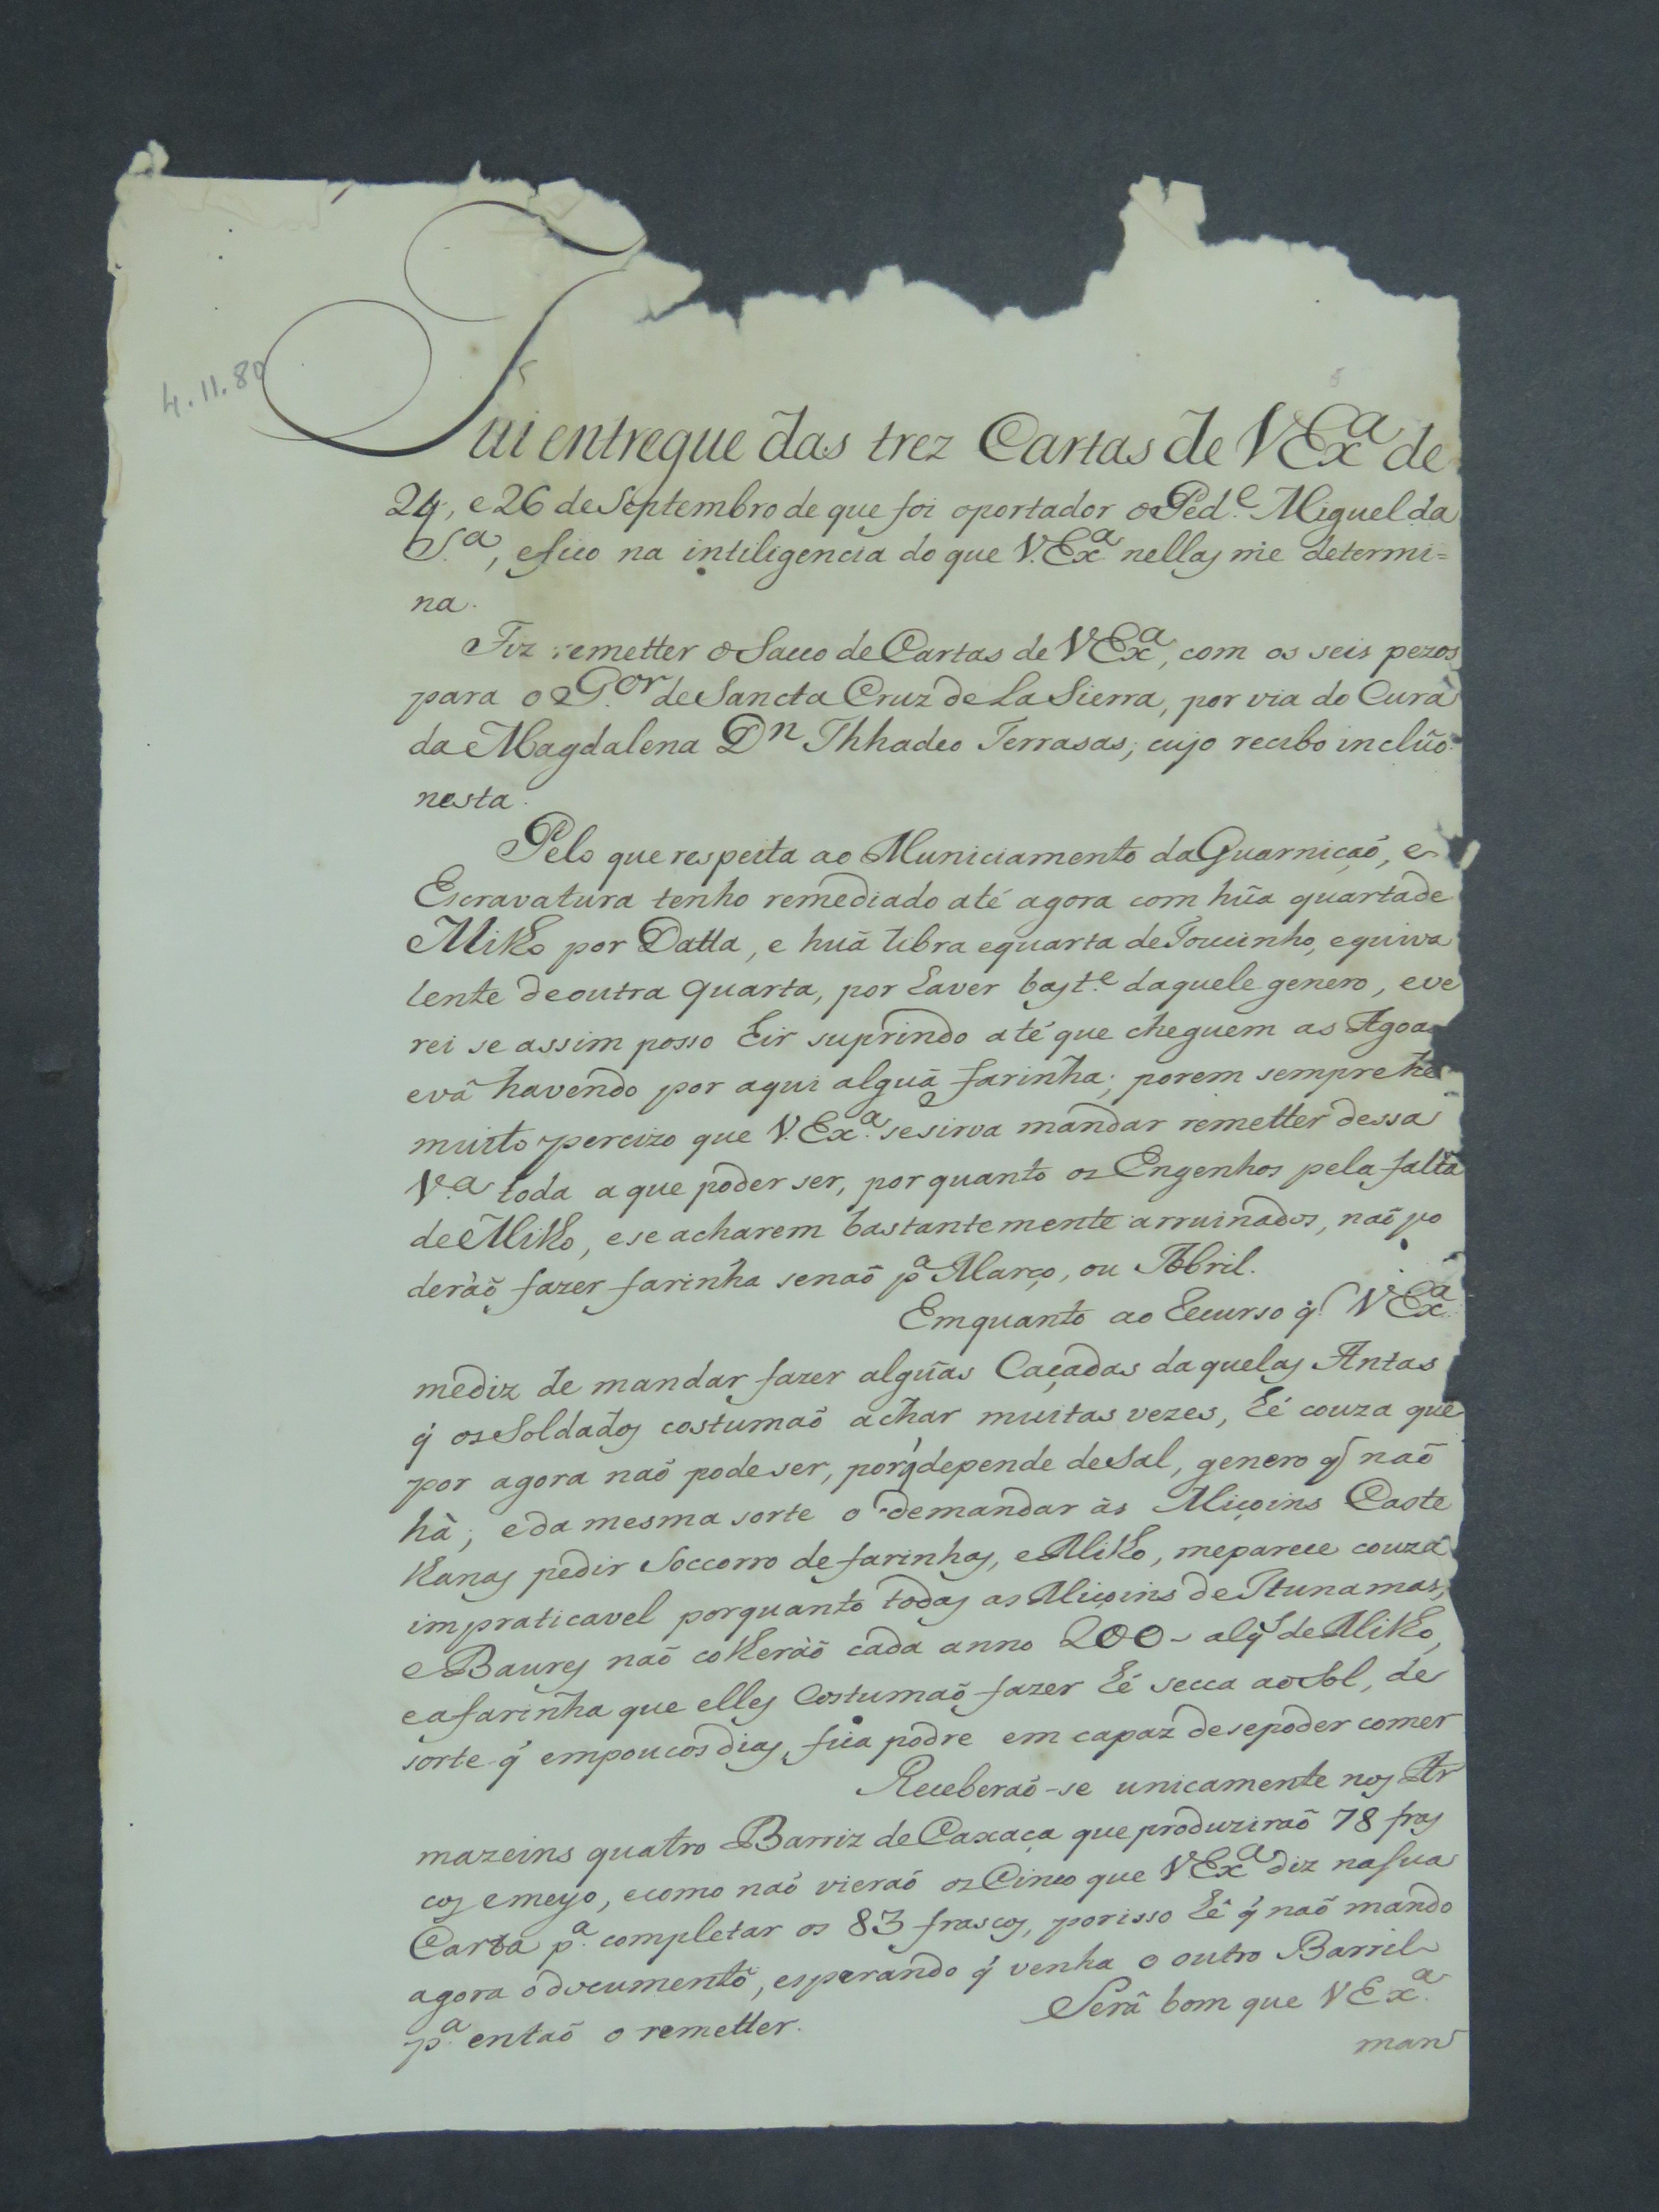 4.11.80
Fui entregue das trez Cartas de VEx.ª de
24, e 26 de Septembro de que foi oportador o Ped.e Miguel da
S.ª, efico na intiligencia do que V.Ex.ª nellas me determi=
na.
Fiz remetter o Sacco de Cartas de VEx.ª, com os seis pezos
para o G.or de Sancta Cruz de La Sierra, por via do Cura
da Magdalena Dn Thhadeo Terrasas; cujo recibo incluo
nesta.
Pelo que respeita ao Municiamento da Guarnição, e
Escravatura tenho remediado até agora com hũa quarta de
Milho por Datta, e huã libra equarta de Toucinho, equiva
lente de outra quarta, por haver bast.e daquele genero, eve
rei se assim posso hir suprindo até que cheguem as Agoas
evá havendo por aqui alguã farinha; porem sempre he
muito percizo que V.Ex.ª se sirva mandar remetter dessa
V.ª toda a que poder ser, por quanto os Engenhos pela falta
de Milho, ese acharem bastantemente arruinados, naõ po
deràõ fazer farinha senaõ p.ª Março, ou Abril.
Emquanto ao Recurso q̃ VEx.ª
mediz de mandar fazer algũas Caçadas daquelas Antas
q̃ os Soldados costumaõ achar muitas vezes, hé couza que
por agora naõ pode ser, porq̃ depende de Sal, genero q̃ naõ
hà; eda mesma sorte o demandar às Miçoins Caste
lhanas pedir Soccorro de farinhas, e Milho, meparece couza
impraticavel porquanto todas as Miçoins de Itunamas,
e Baures naõ colheràõ cada anno 200 - alq̃s de Milho,
eafarinha que elles Costumaõ fazer hé secca ao Sol, de
sorte q̃ empoucos dias fica podre em capaz desepoder comer
Receberaõ-se unicamente nos Ar
mazeins quatro Barriz de Caxaça que produziraõ 78 fras
cos emeyo, ecomo naõ vieraõ os Cinco que VEx.ª diz nasua
Carta p.ª completar os 83 frascos, porisso hê q̃ naõ mando
agora o documento, esperando q̃ venha o outro Barril
p.ª entaõ o remetter. Será bom que VEx.ª
man